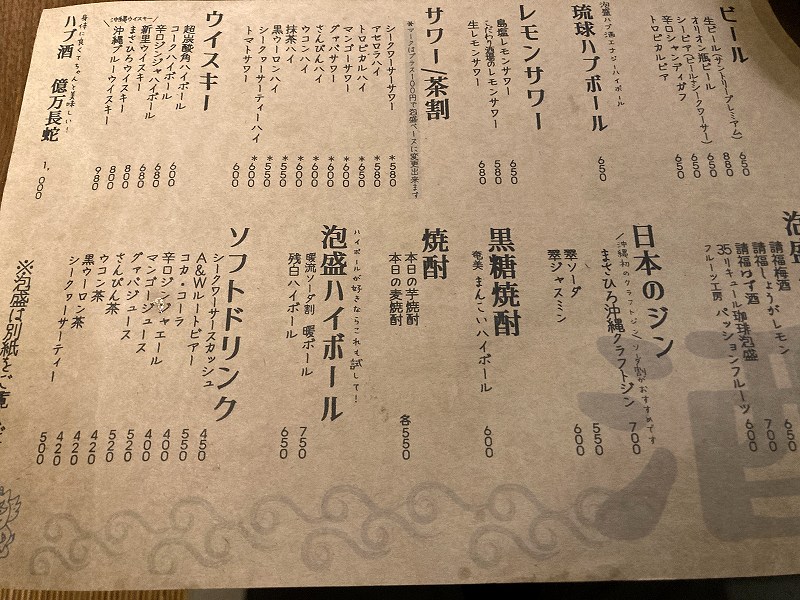 ビール
生ビール(サントリープレミアム) 650
オリオン瓶ビール 880
シービア(ビールシークワーサー) 650
辛口シャンディガフ 650
トロピカルビア 650
泡盛ハブ酒エナジーハイボール
琉球ハブボール 650
レモンサワー
島塩レモンサワー 650
こだわり酒場のレモンサワー 580
生レモンサワー 680
サワー/茶割
※マークはプラス100円で泡盛ベースに変更出来ます
シークワーサーサワー *580
アセロラハイ *580
トロピカルハイ *600
マンゴーサワー *600
グァバサワー *600
さんぴんハイ *600
ウコンハイ *600
抹茶ハイ *550
黒ウーロンハイ *550
シークワーサーティーハイ *600
トマトサワー 600
ウイスキー
超炭酸角ハイボール 600
コークハイボール 680
辛口ジンジャハイボール 680
新里ウイスキー 800
まさひろウイスキー 800
沖縄ブルーウイスキー 980
\沖縄産ウイスキー/
身体に良くてちゃんと美味しい!
ハブ酒 億万長蛇 1,000
泡盛
請福梅酒 650
請福しょうがレモン 700
請福ゆず酒 600
35リキュール珈琲泡盛
フルーツ工房 パッションフルーツ
日本のジン
\沖縄初のクラフトジン/ソーダ割がおすすめです
まさひろ沖縄クラフトジン 700
翠ソーダ 550
翠ジャスミン 600
黒糖焼酎
奄美 まんこいハイボール 600
焼酎
本日の芋焼酎
本日の麦焼酎
各550
泡盛ハイボール
ハイボールが好きならこれも試して!
暖流ソーダ割 暖ボール 750
残白ハイボール 650
ソフトドリンク
シークワーサースカッシュ 450
A&Wルートビアー 550
コカ・コーラ 400
辛口ジンジャエール 400
マンゴージュース 520
グァバジュース 520
さんぴん茶 420
ウコン茶 420
黒ウーロン茶 420
シークワーサーティー 500
※泡盛は別紙をご覧